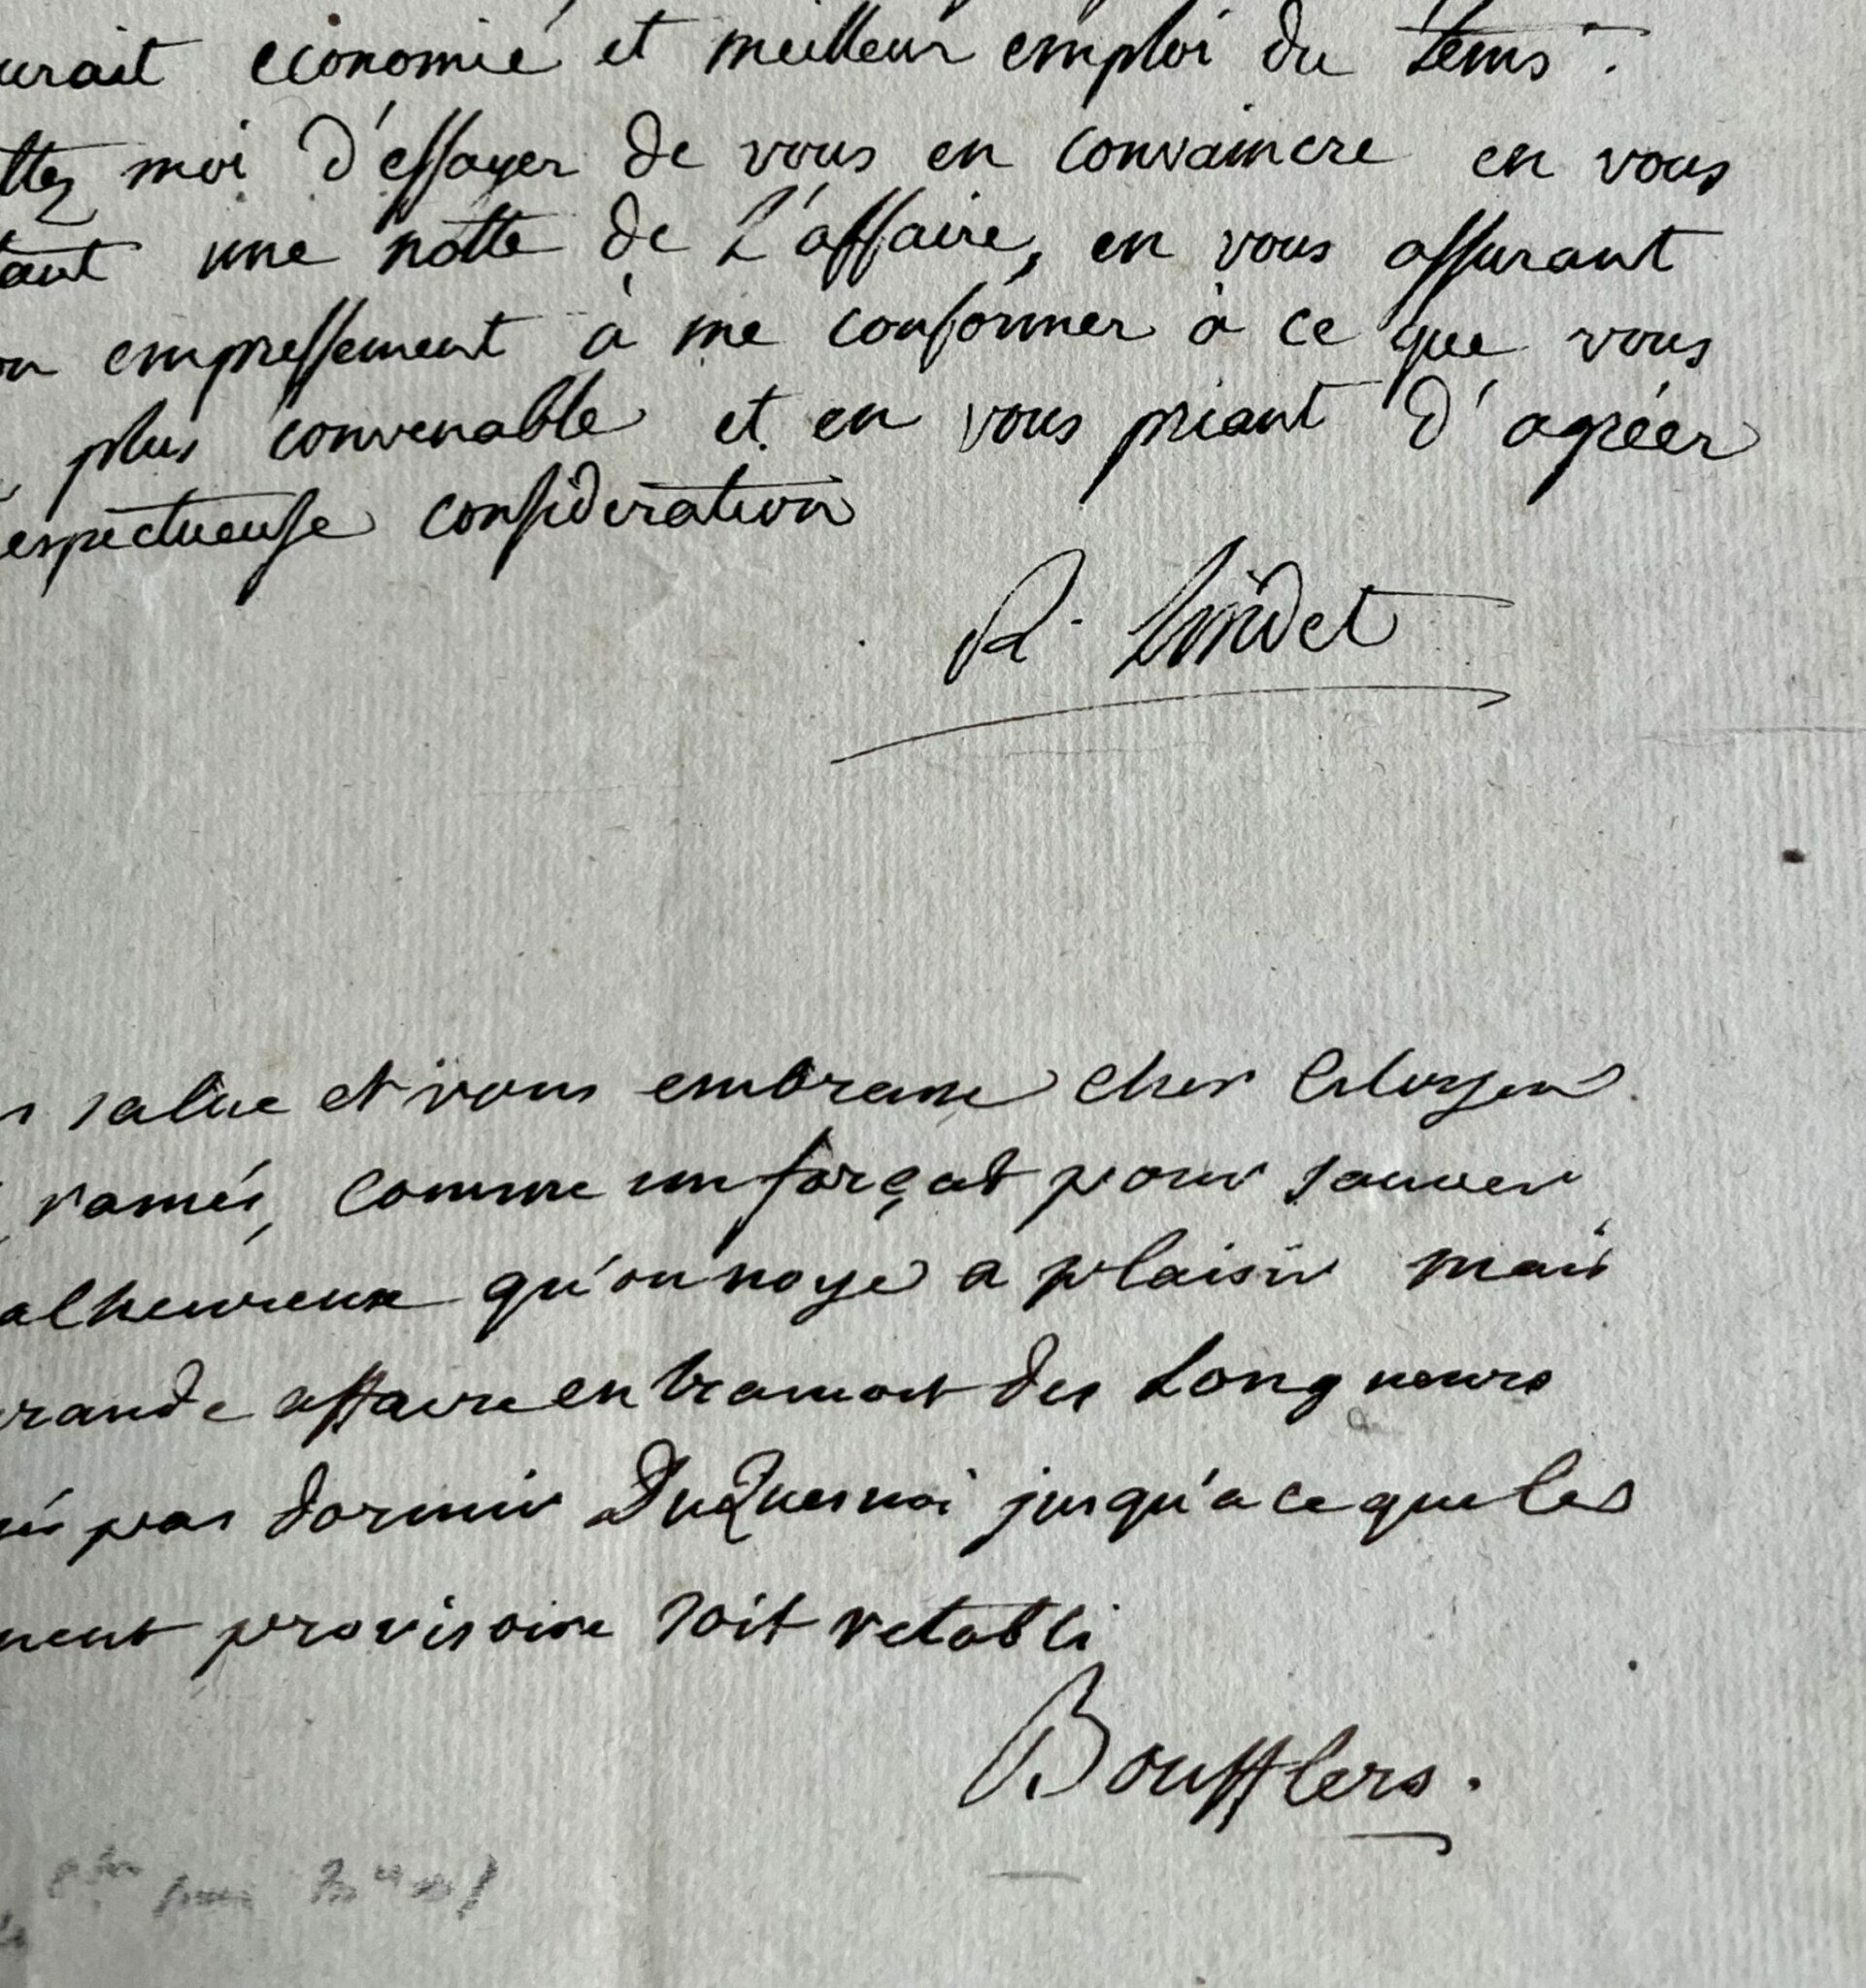 urait economie et meilleur emploi du tems.
ttez moi d'essayer de vous en convaincre en vous
tant une notte de L'affaire, en vous assurant
on empressement à me conformer à ce que vous
plus convenable et en vous priant d'agréer
espectueuse consideration
R. Lindet
salue et vous embrasse cher Citoyen
ramés, comme un forçat pour sauver
alheureux qu'on noye a plaisir mais
rande affaire entrainoit des Longueurs
és pas dormir DuQuesnoi jusqu'a ce que les
ment provisoire soit retabli
Boufflers.